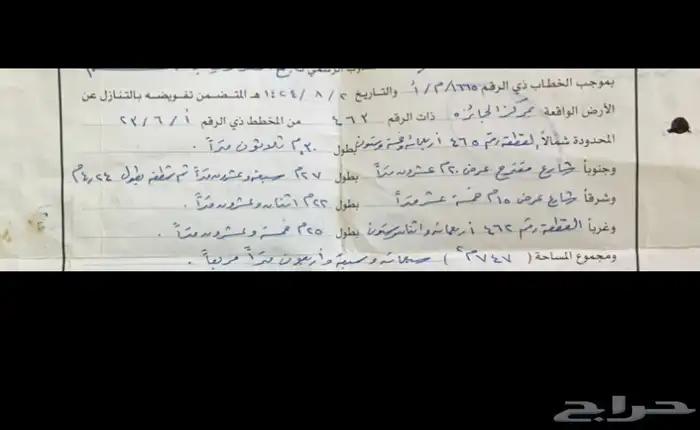 بموجب الخطاب ذي الرقم ٨٦٦٥/م/أ والتاريخ ١٤٢٤/٨/٢ هـ المتضمن تفويضه بالتنازل عن
الأرض الواقعة بمركز الحائزه ذات الرقم ٤٦٣ من المخطط ذي الرقم أ/٢٣/٦
المحدودة شمالاً القطعة رقم ٤٦٥ أربعمائة وخمسة وستون بطول ٣٠م ثلاثون متراً
وجنوباً شارع مقترح عرض ٢٠م عشرون متراً بطول ٢٧م سبعة وعشرون متراً ثم شطفة بطول ٤٫٢٤م
وشرقاً شارع عرض ١٥م خمسة عشر متراً بطول ٢٢م اثنان وعشرون متراً .
وغرباً القطعة رقم ٤٦٢ أربعمائة واثنان وستون بطول ٢٥م خمسة وعشرون متراً .
ومجموع المساحة ( ٧٤٧م٢ ) سبعمائة وسبعة وأربعون متراً مربعاً .
حراج